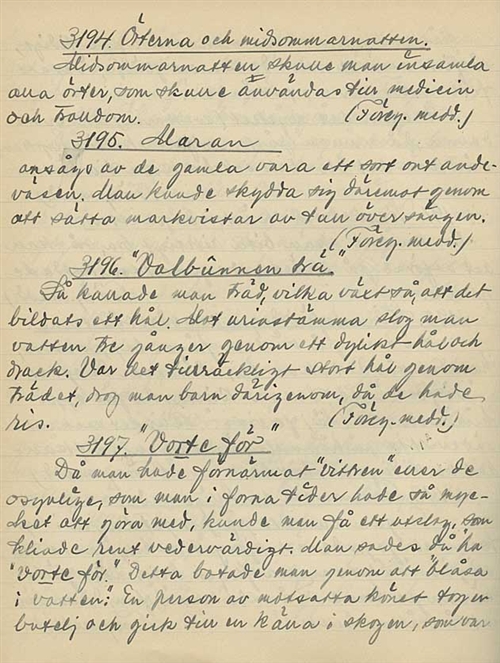 3194. Örterna och midsommarnatten.
Midsommarnatten skulle man insamla
alla örter, som skulle användas till medicin
och trolldom. (Föreg. medd.)
3195. Maran
ansågs av de gamla vara ett sort ont ande-
väsen. Man kunde skydda sig däremot genom
att sätta markvistar av tall över sängen.
(Föreg. medd.)
3196. "Valbunnen trä."
Så kallade man träd, vilka växt så, att det
bildats ett hål. Mot urinstämma slog man
vatten tre gånger genom ett dylikt hål och
drack. Var det tillräckligt stort hål genom
trädet, drog man barn därigenom, då de hade
ris. (Föreg. medd.)
3197. "Vorte för"
Då man hade förnärmat "vittren" eller de
osynlige, som man i forna tider hade så myc-
ket att göra med, kunde man få ett utslag, som
kliade rent vedervärdigt. Man sades då "ha
"vorte för." Detta botade man genom att "blåsa
i vatten": En person av motsatta könet tog en
butelj och gick till en källa i skogen, som var